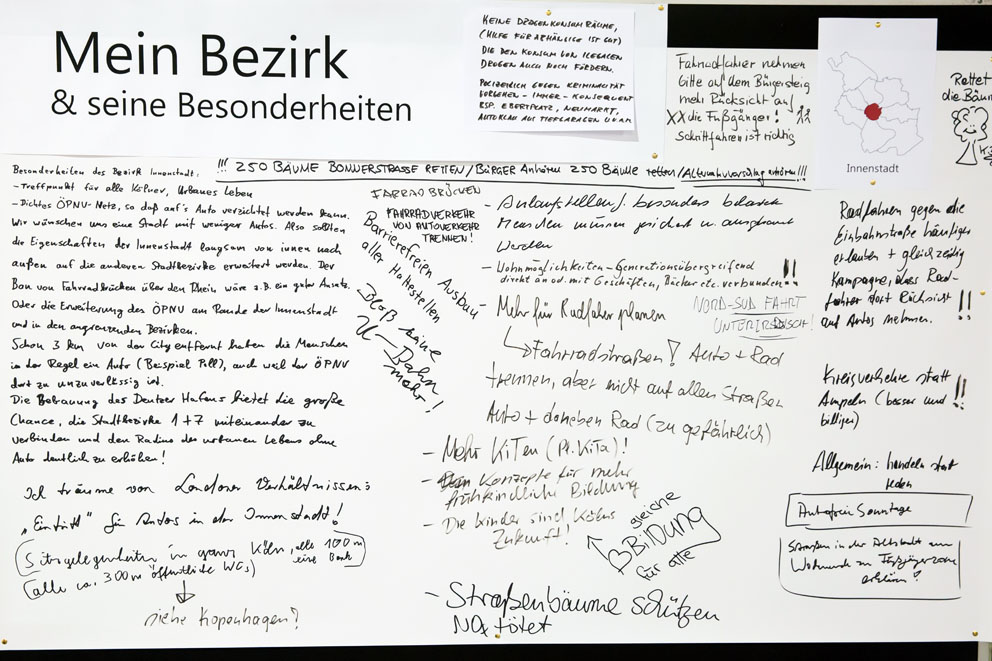 Mein Bezirk
& seine Besonderheiten
KEINE DROGENKONSUMRÄUME,
(HILFE FÜR ABHÄNGIGE IST GUT)
DIE DEN KONSUM VON ILEGALEN
DROGEN AUCH NOCH FÖRDERN.
POLIZEILICH GEGEN KRIMINALITÄT
VORGEHEN - IMMER - KONSEQUENT
BSP. EBERTPLATZ, NEUMARKT,
AUTOKLAU AUS TIEFGARAGEN U.V.M
Fahrradfahrer nehmen
bitte auf dem Bürgersteig
mehr Rücksicht auf
XX die Fußgänger!
Schrittfahren ist richtig
Innenstadt
Rettet
die Bäum
!!! 250 BÄUME BONNERSTRASSE RETTEN / BÜRGER Anhören 250 Bäume retten /
Besonderheiten des Bezirk Innenstadt:
- Treffpunkt für alle Kölner, Urbanes Leben
- Dichtes ÖPNV-Netz, so daß auf's Auto verzichtet werden kann.
Wir wünschen uns eine Stadt mit weniger Autos. Also sollten
die Eigenschaften der Innenstadt langsam von innen nach
außen auf die anderen Stadtbezirke erweitert werden. Der
Bau von Fahrradbrücken über den Rhein wäre z.B. ein guter Ansatz.
Oder die Erweiterung des ÖPNV am Rande der Innenstadt
und in den angrenzenden Bezirken.
Schon 3 km von der City entfernt haben die Menschen
in der Regel ein Auto (Beispiel Poll), auch weil der ÖPNV
dort zu unzuverlässig ist.
Die Bebauung des Deutzer Hafens bietet die große
Chance, die Stadtbezirke 1+7 miteinander zu
verbinden und den Radius des urbanen Lebens ohne
Auto deutlich zu erhöhen!
Ich träume von Londoner Verhältnissen:
„Eintritt" für Autos in der Innenstadt!
(Sitzgelegenheiten in ganz Köln, alle 100 m eine Bank)
(alle ca. 300 m öffentliche WCs)
siehe Kopenhagen?
FAHRRADBRÜCKEN
FAHRRADVERKEHR
VON AUTOVERKEHR
TRENNEN!
Barrierefreien Ausbau
aller Haltestellen
Bloß keine
U-Bahn
mehr!
- Anlaufstellen f. besonders belastete
Menschen müssen gesichert u. ausgebaut
werden
- Wohnmöglichkeiten - Generationsübergreifend
direkt an od. mit Geschäften, Bäcker etc. verbunden !!
Mehr für Radfahrer planen
NORD-SÜD FAHRT
UNTERIRDISCH!
Fahrradstraßen! Auto + Rad
trennen, aber nicht auf allen Straßen
Auto + daneben Rad (zu gefährlich)
- Mehr KiTen (Pl. KiTa)!
- Konzepte für mehr
frühkindliche Bildung
- Die Kinder sind Kölns
Zukunft!
gleiche
BILDUNG
für alle
- Straßenbäume schützen
NOx tötet
Radfahren gegen die
Einbahnstraße häufiger
erlauben + gleichzeitig
Kampagne, dass Rad-
fahrer dort Rücksicht !!
auf Autos nehmen.
Kreisverkehre statt
Ampeln (besser und !!
billiger)
Allgemein: handeln statt
reden
Autofreie Sonntage
Straßen in der Altstadt am
Wochenende zu Fußgängerzone
erklären!